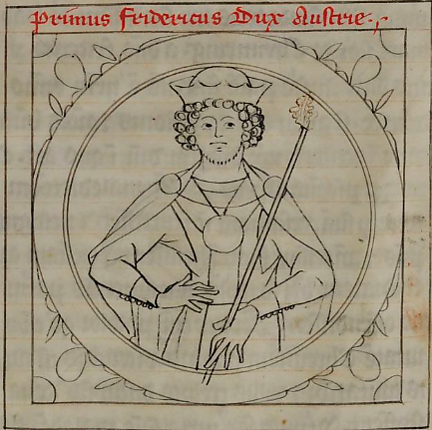 Primus Fridericus Dux Austrie